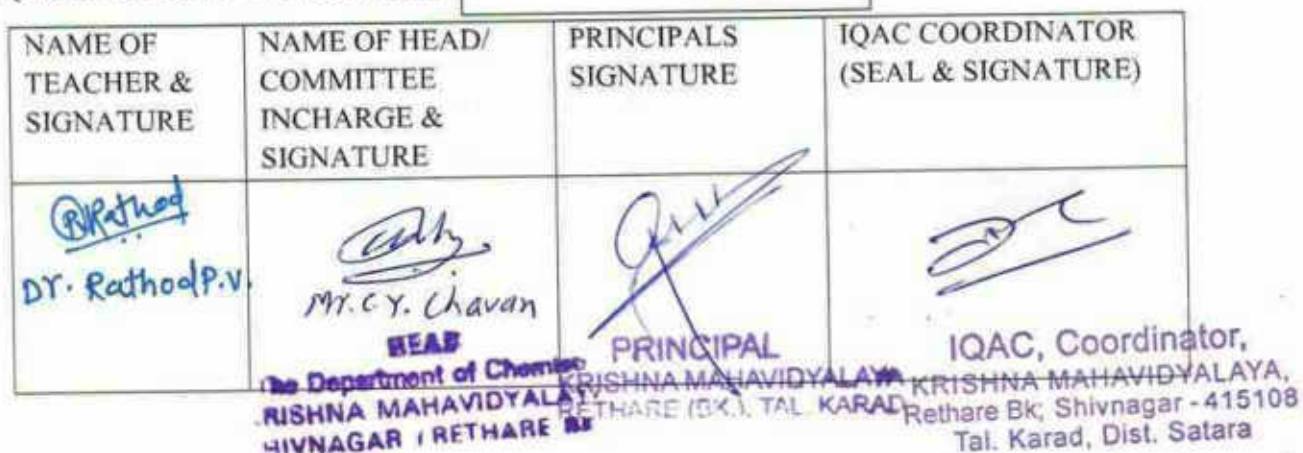 NAME OF
TEACHER &
SIGNATURE
NAME OF HEAD/
COMMITTEE
INCHARGE &
SIGNATURE
PRINCIPALS
SIGNATURE
IQAC COORDINATOR
(SEAL & SIGNATURE)
Rathod
Dr. Rathod P.V.
Mr. C.Y. Chavan
HEAD
Department of
RISHNA MAHAVIDYALAY
HIVNAGAR / RETHARE BK
PRINCIPAL
KRISHNA MAHAVIDYALAYA
RETHARE (BK.), TAL. KARAD
IQAC, Coordinator,
KRISHNA MAHAVIDYALAYA,
Rethare Bk; Shivnagar - 415108
Tal. Karad, Dist. Satara